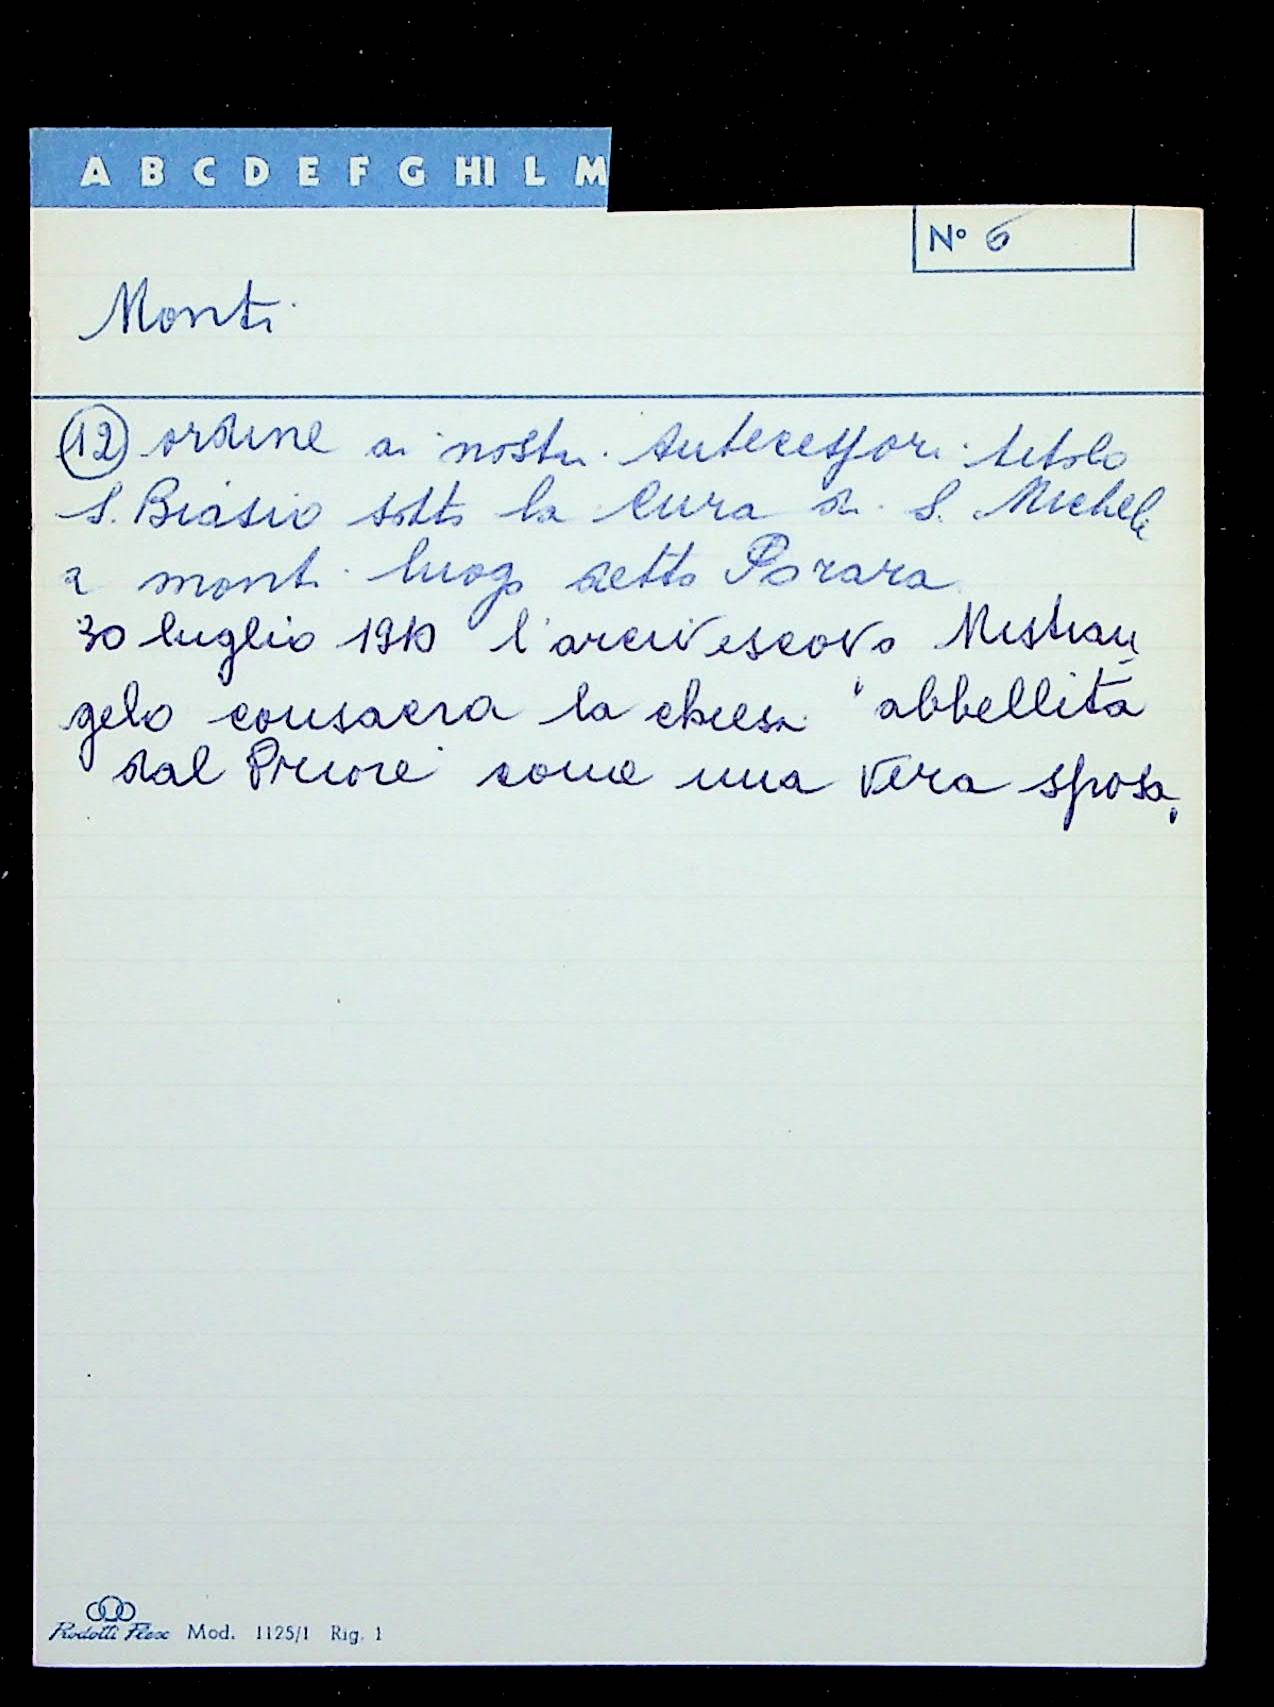 A B C D E F G HI L M
N° 6
Monti
(12) ordine ai nostri Antecessori titolo
S. Biasio sotto la Cura di S. Michele
a monti luogo detto Porara
30 luglio 1910 l'arcivescovo Mistran
gelo consacra la chiesa "abbellita
dal Priore come una vera sposa"
Prodotti Flex Mod. 1125/1 Rig. 1